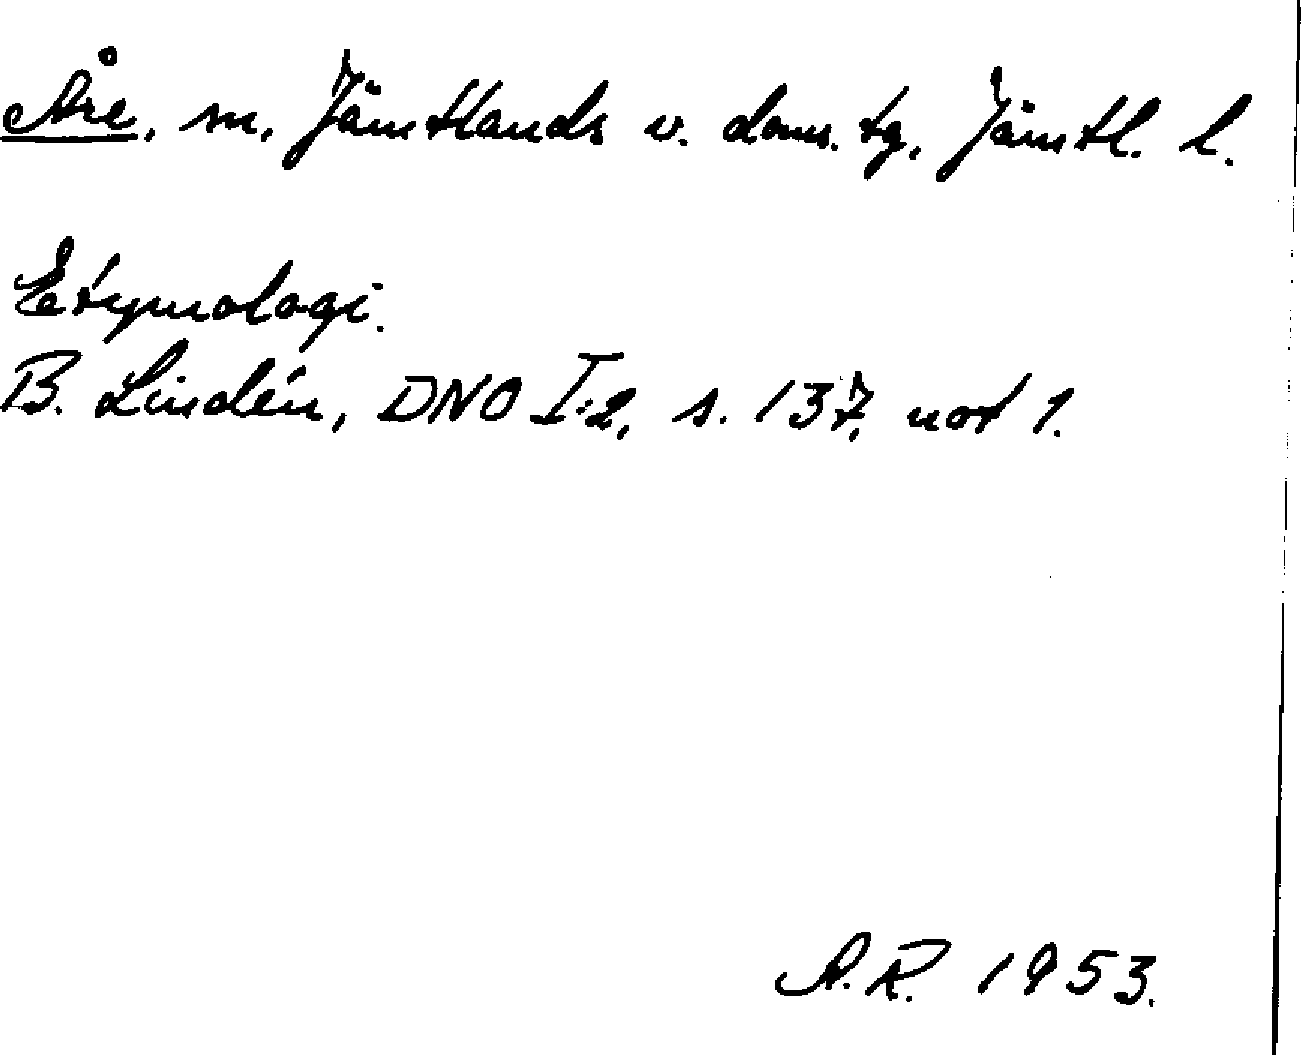 Åre, sn, Jämtlands v. doms. tg, Jämtl. l.
Etymologi.
B. Lindén, DNO I:2, s. 137, not 1.
A.R. 1953.